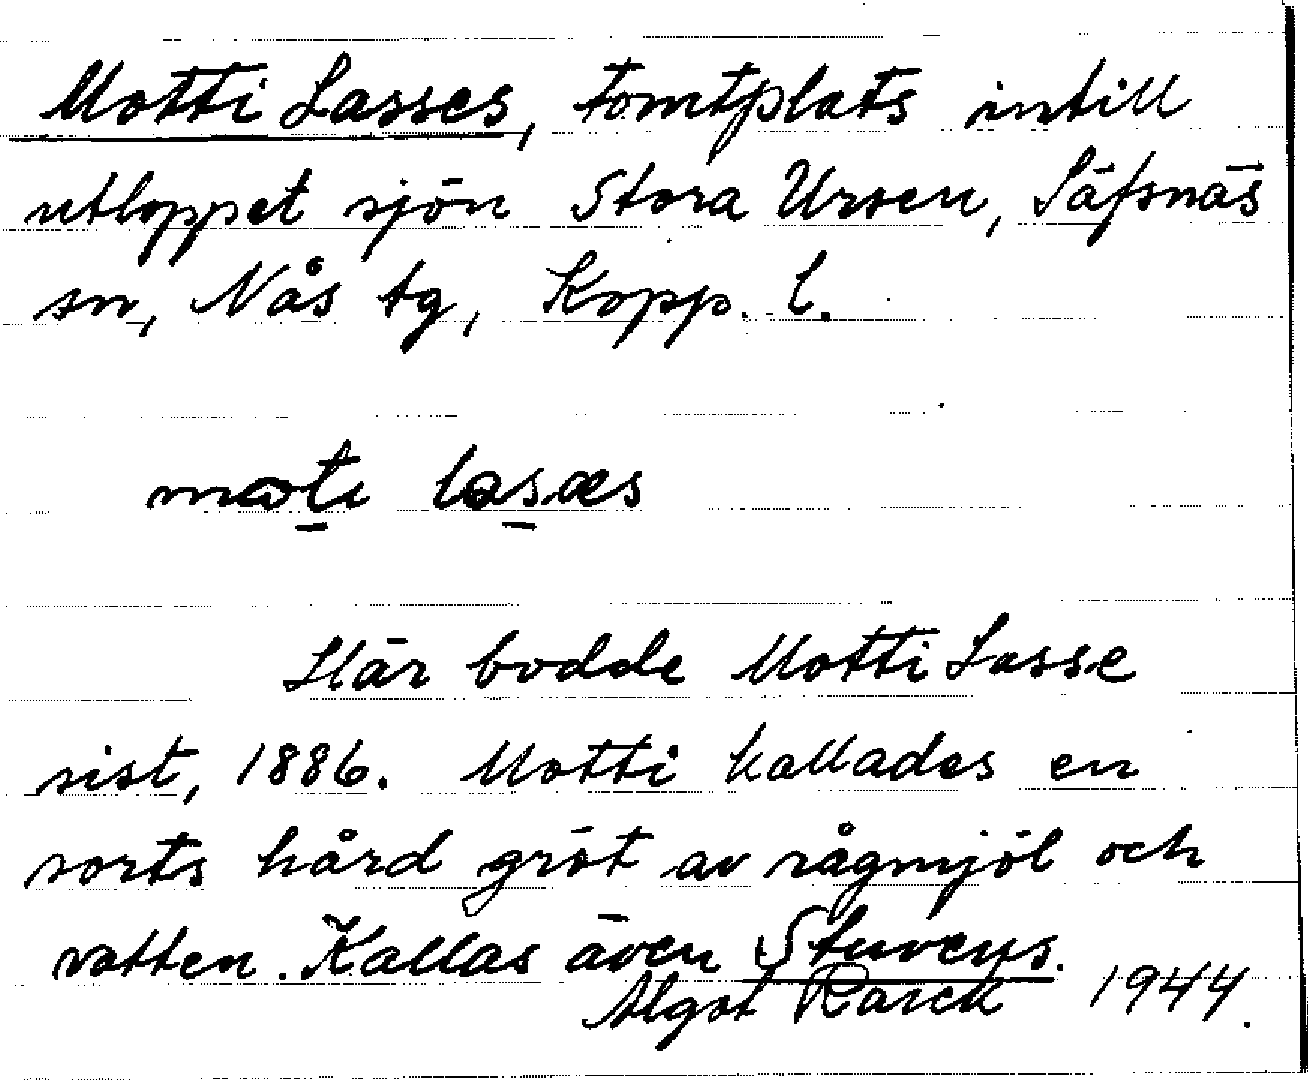 Motti Lasses, tomtplats intill
utloppet sjön Stora Ursen, Säfsnäs
sn, Nås tg, Kopp. l.
mɷti lasæs
Här bodde Motti Lasse
sist, 1886. Motti kallades en
sorts hård gröt av rågmjöl och
vatten. Kallas även Stuvens.
Algot Rarck 1944.